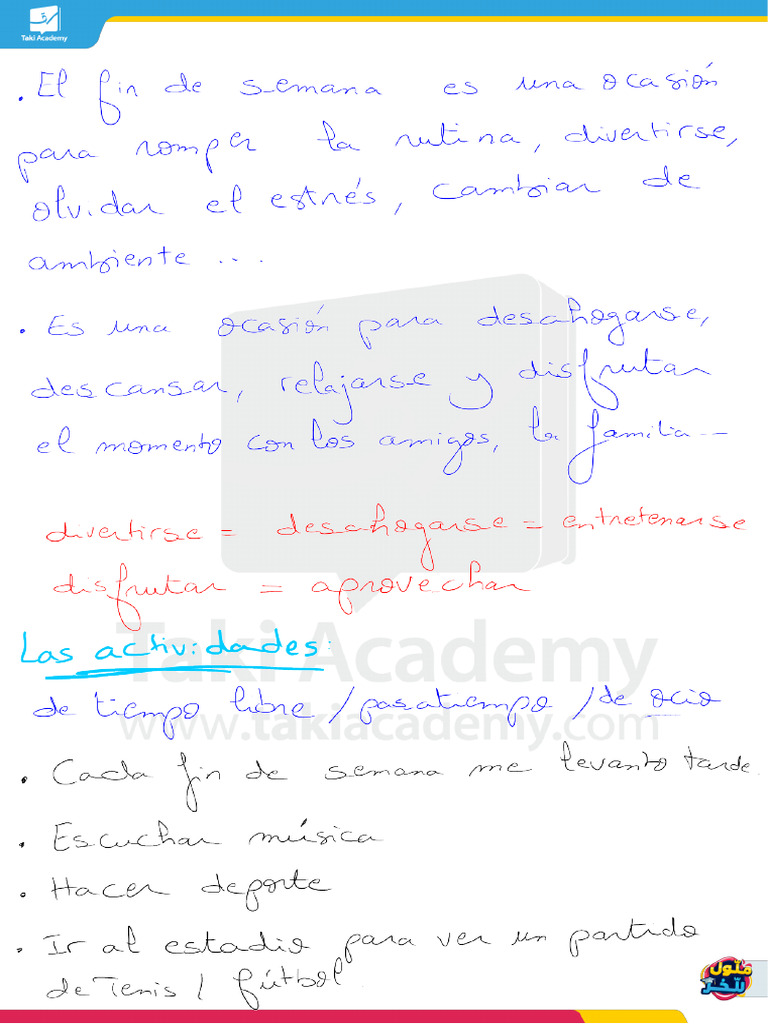 Taki Academy
. El fin de semana es una ocasión
para romper la rutina, divertirse,
olvidar el estrés, cambiar de
ambiente ...
. Es una ocasión para desahogarse,
descansar, relajarse y disfrutar
el momento con los amigos, la familia --
divertirse = desahogarse = entretenarse
disfrutar = aprovechar
Las actividades:
Taki Academy
de tiempo libre / pasatiempo / de ocio
www.takiacademy.com
. Cada fin de semana me levanto tarde.
. Escuchar música
. Hacer deporte
. Ir al estadio para ver un partido
de Tenis / fútbol